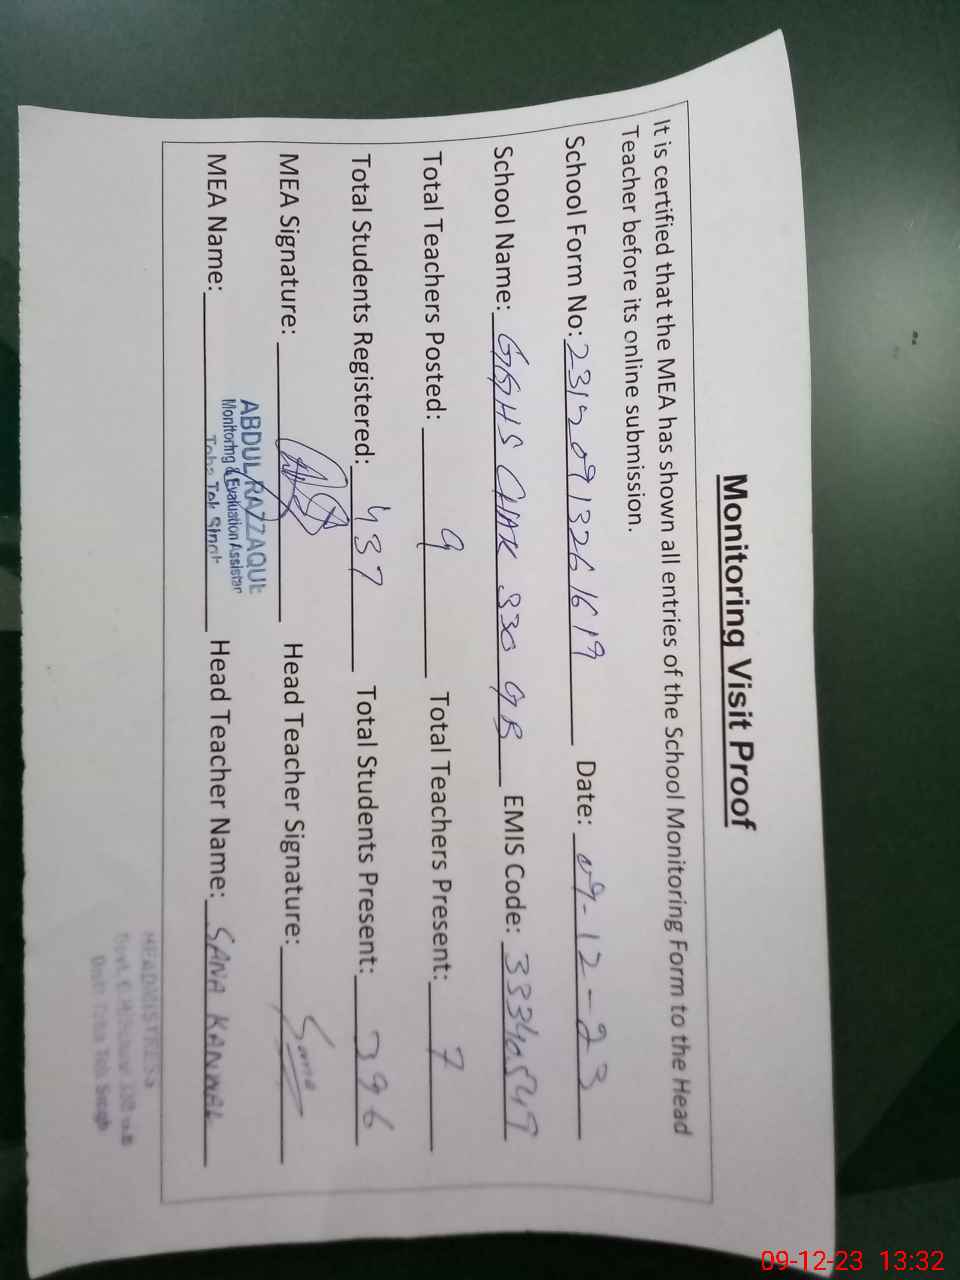 Monitoring Visit Proof
It is certified that the MEA has shown all entries of the School Monitoring Form to the Head
Teacher before its online submission.
School Form No: 23120913261619 Date: 09-12-23
School Name: GGHS CHAK 330 GB EMIS Code: 33340549
Total Teachers Posted: 9 Total Teachers Present: 7
Total Students Registered: 437 Total Students Present: 396
MEA Signature: Head Teacher Signature: Sana
MEA Name: ABDUL RAZZAQUE Head Teacher Name: SANA KANWAL
Monitoring & Evaluation Assistan
Toba Tek Singh
HEADMISTRESS
Govt.
Toba Tek Singh
09-12-23 13:32